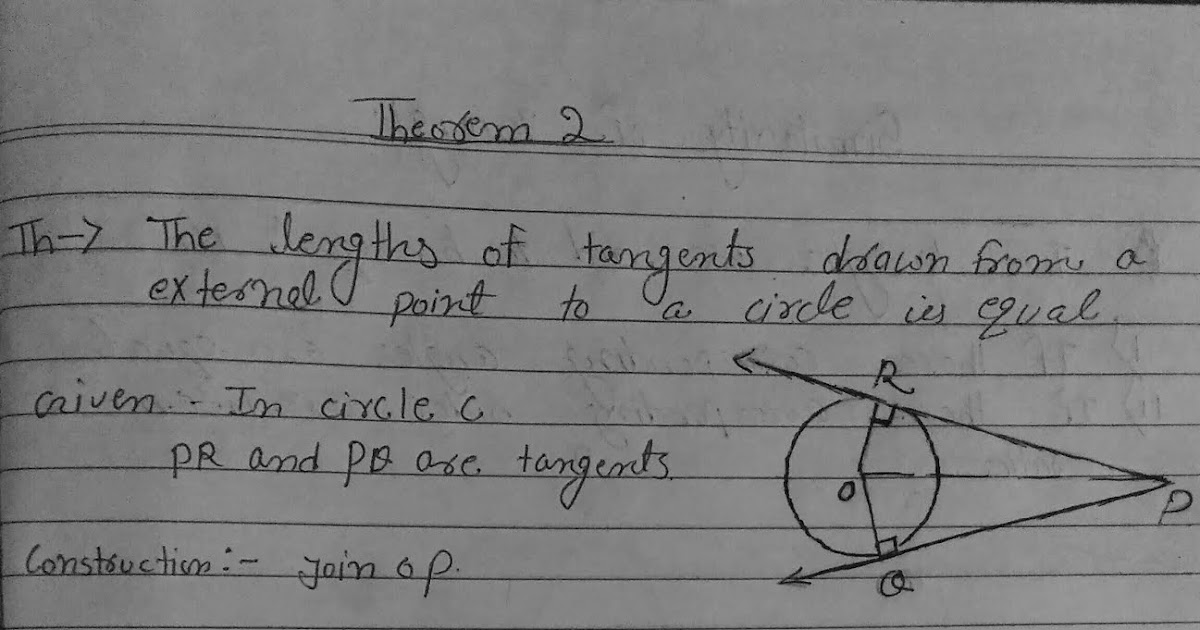 Theorem 2
Th-> The lengths of tangents drawn from a
external point to a circle is equal.
Given :- In circle C
PR and PQ are tangents.
Construction :- Join OP.
R
O
P
Q